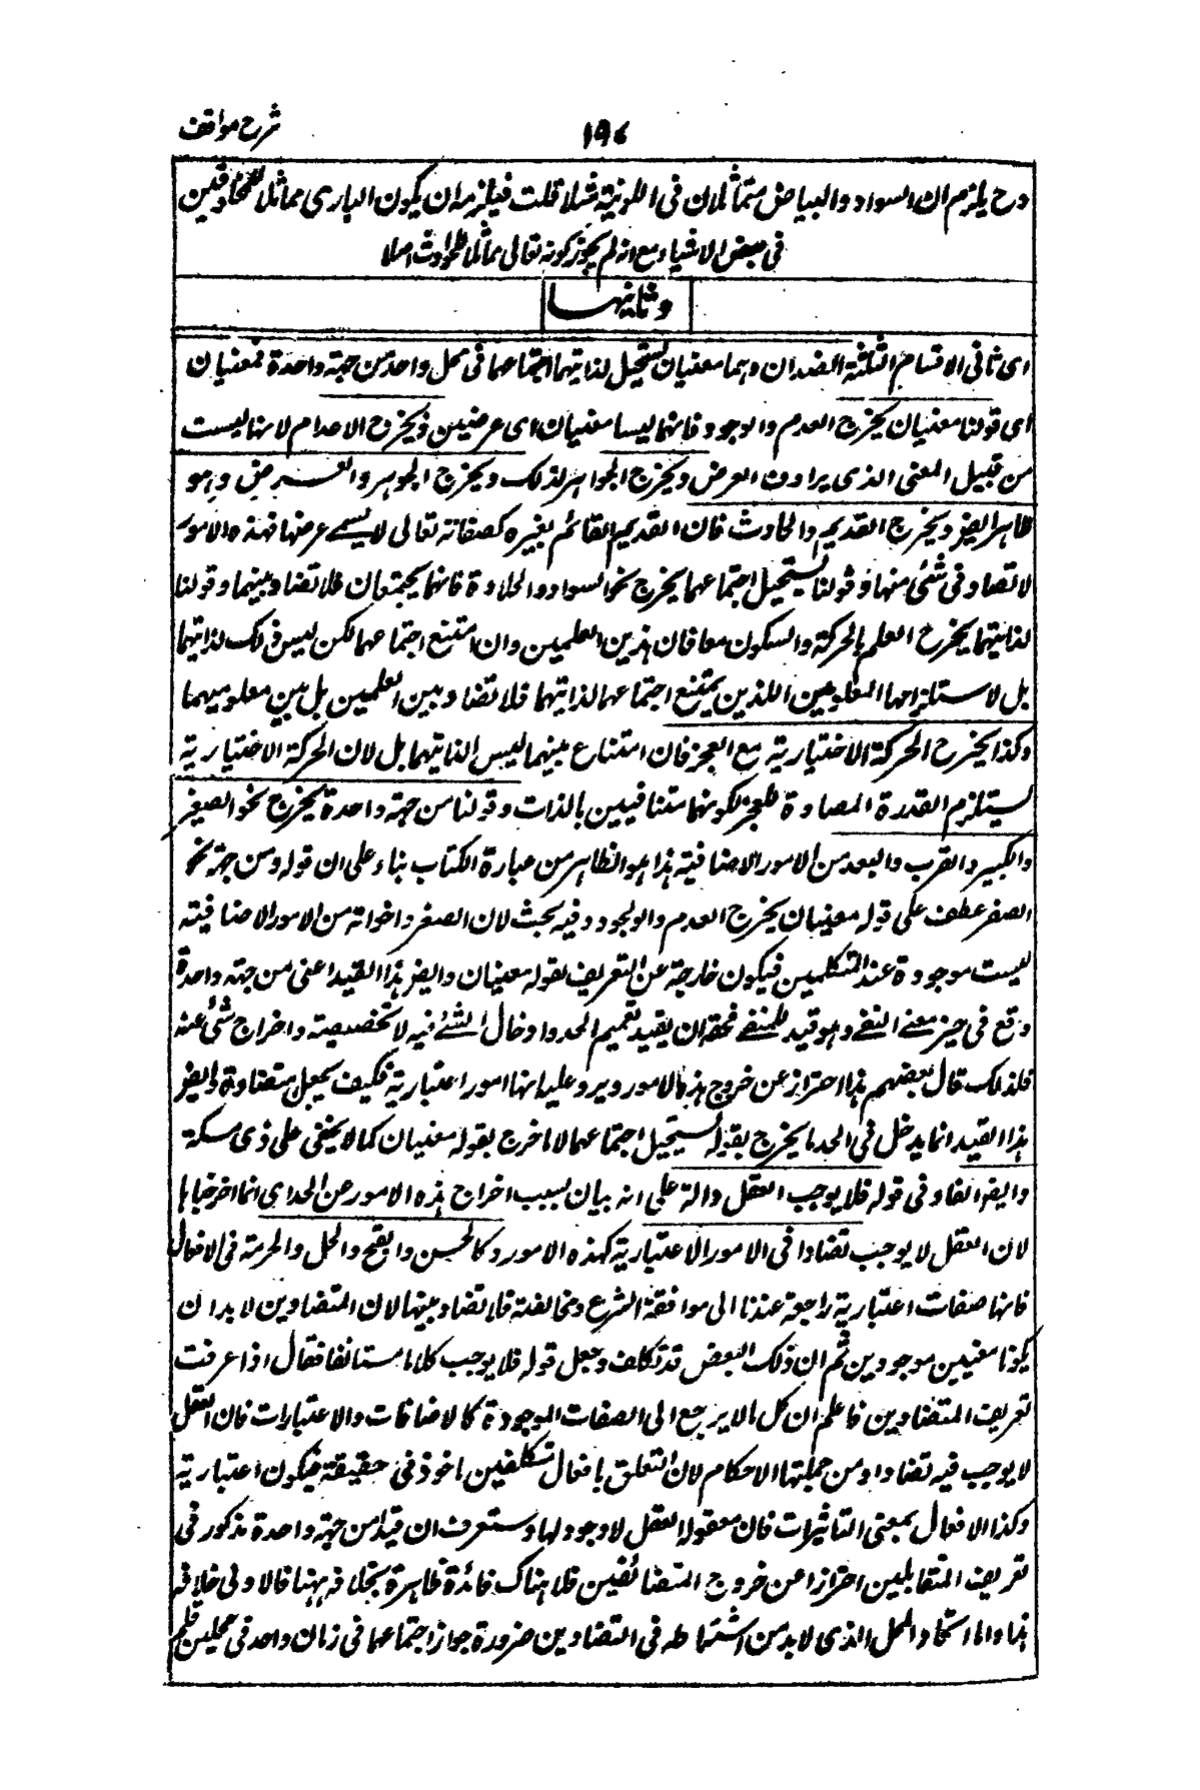 شرح مواقف
١٩٤
وح يلزم ان السواد والبياض متماثلان فى اللونية مثلا قلت فيلزمه ان يكون البارى مماثلا للمخلوقين
فى بعض الاشياء مع انه لم يجوز كونه تعالى مماثلا للحوادث اصلا
وثانيها
اى ثانى الاقسام الثلثة الضدان وهما معنيان يستحيل لذاتيهما اجتماعهما فى محل واحد من جهة واحدة فمعنيان
اى قولنا معنيان يخرج العدم والوجود فانهما ليسا معنيان اى عرضين ويخرج الاعدام لانها ليست
من قبيل المعنى الذى يرادف العرض ويخرج الجواهر لذلك ويخرج الجوهر والعرض وهو
ظاهر ايضا ويخرج القديم والحادث فان القديم القائم بغيره كصفاته تعالى لا يسمى عرضا فهذه الامور
لا تضاد فى شئ منها وقولنا يستحيل اجتماعهما يخرج نحو السواد والحلاوة فانهما يجتمعان فلا تضاد بينهما وقولنا
لذاتيهما يخرج العلم بالحركة والسكون معا فان هذين العلمين وان امتنع اجتماعهما لكن ليس ذلك لذاتيهما
بل لاستلزامهما المعلومين اللذين يمتنع اجتماعهما لذاتيهما فلا تضاد بين العلمين بل بين معلوميهما
وكذا يخرج الحركة الاختيارية مع العجز فان امتناع بينهما ليس لذاتيهما بل لان الحركة الاختيارية
يستلزم القدرة المضادة للعجز لكونهما متنافيين بالذات وقولنا من جهة واحدة يخرج نحو الصغر
والكبر والقرب والبعد من الامور الاضافية هذا هو الظاهر من عبارة الكتاب بناء على ان قوله ومن جهة نحو
الصغر عطف على قوله معنيان يخرج العدم والوجود وفيه بحث لان الصغر واخواته من الامور الاضافية
ليست موجودة عند المتكلمين فيكون خارجة عن التعريف بقوله معنيان وايضا هذا القيد اعنى من جهة واحدة
وقع فى حيز معنى النفى وهو قيد للمنفى فحقه ان يفيد تعميم الحد وادخال الشئ فيه لا تخصيصه واخراج شئ عنه
فلذلك قال بعضهم هذا احتراز عن خروج هذه الامور ويرد عليه انها امور اعتبارية فكيف يجعل متضادة وايضا
هذا القيد انما يدخل فى الحد ما يخرج بقوله يستحيل اجتماعهما لا ما خرج بقوله معنيان كما لا يخفى على ذى مسكة
وايضا الفاء فى قوله فلا يوجب العقل دالة على انه بيان لسبب اخراج هذه الامور عن الحد اى انما اخرجناها
لان العقل لا يوجب تضادا فى الامور الاعتبارية كهذه الامور وكالحسن والقبح والحل والحرمة فى الافعال
فانها صفات اعتبارية راجعة عندنا الى موافقة الشرع ومخالفته فلا تضاد بينها لان المتضادين لا بد ان
يكونا معنيين موجودين ثم ان ذلك البعض قد تكلف وجعل قوله فلا يوجب كلاما مستانفا فقال اذا عرفت
تعريف المتضادين فاعلم ان كل ما لا يرجع الى الصفات الموجودة كالاضافات والاعتبارات فان العقل
لا يوجب فيه تضادا ومن جملتها الاحكام لان التعلق بافعال المكلفين ماخوذ فى حقيقته فيكون اعتبارية
وكذا الافعال بمعنى التاثيرات فان معقوله العقل لا وجود لها وستعرف ان قيد من جهة واحدة مذكور فى
تعريف المتقابلين احترازا عن خروج المتضائفين فلها هناك فائدة ظاهرة بخلافه ههنا فالاولى خلافه
هذا واما اتحاد المحل الذى لا بد من اشتراطه فى المتضادين ضرورة جواز اجتماعهما فى زمان واحد فى محلين فلم